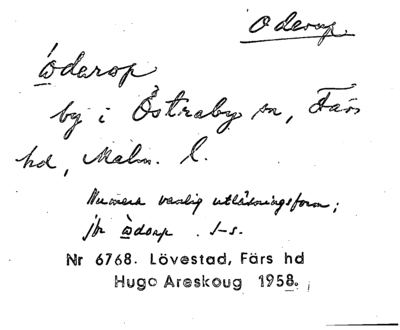 Oderup.
òderop
by i Östraby sn, Färs
hd, Malm. l.
Numera vanlig utläsningsform;
jfr òdorp . I-s.
Nr 6768. Lövestad, Färs hd
Hugo Areskoug 1958.